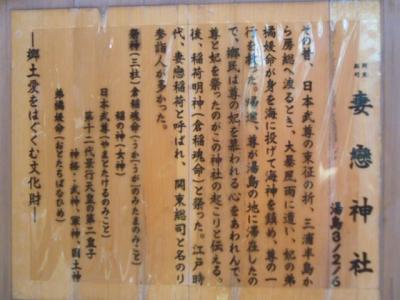 関東総司 妻戀神社
湯島3/2/6
その昔、日本武尊の東征の折、三浦半島か
ら房総へ渡るとき、大暴風雨に遭い、妃の弟
橘媛命が身を海に投げて海神を鎮め、尊の一
行を救った。帰途、尊が湯島の地に滞在したの
で、郷民は尊の妃を慕われる心をあわれんで、
尊と妃を祭ったのがこの神社の起こりと伝える。
後、稲荷明神(倉稲魂命)と祭った。江戸時
代、妻恋稲荷と呼ばれ、関東総司と名のり
参詣人が多かった。
祭神(三社)倉稲魂命(うか(うが)のみたまのみこと)
稲の神(女神)
日本武尊(やまとたけるのみこと)
第十二代景行天皇の第二皇子
神格・武神、軍神、国土神
弟橘媛命(おとたちばなひめ)
―郷土愛をはぐくむ文化財―